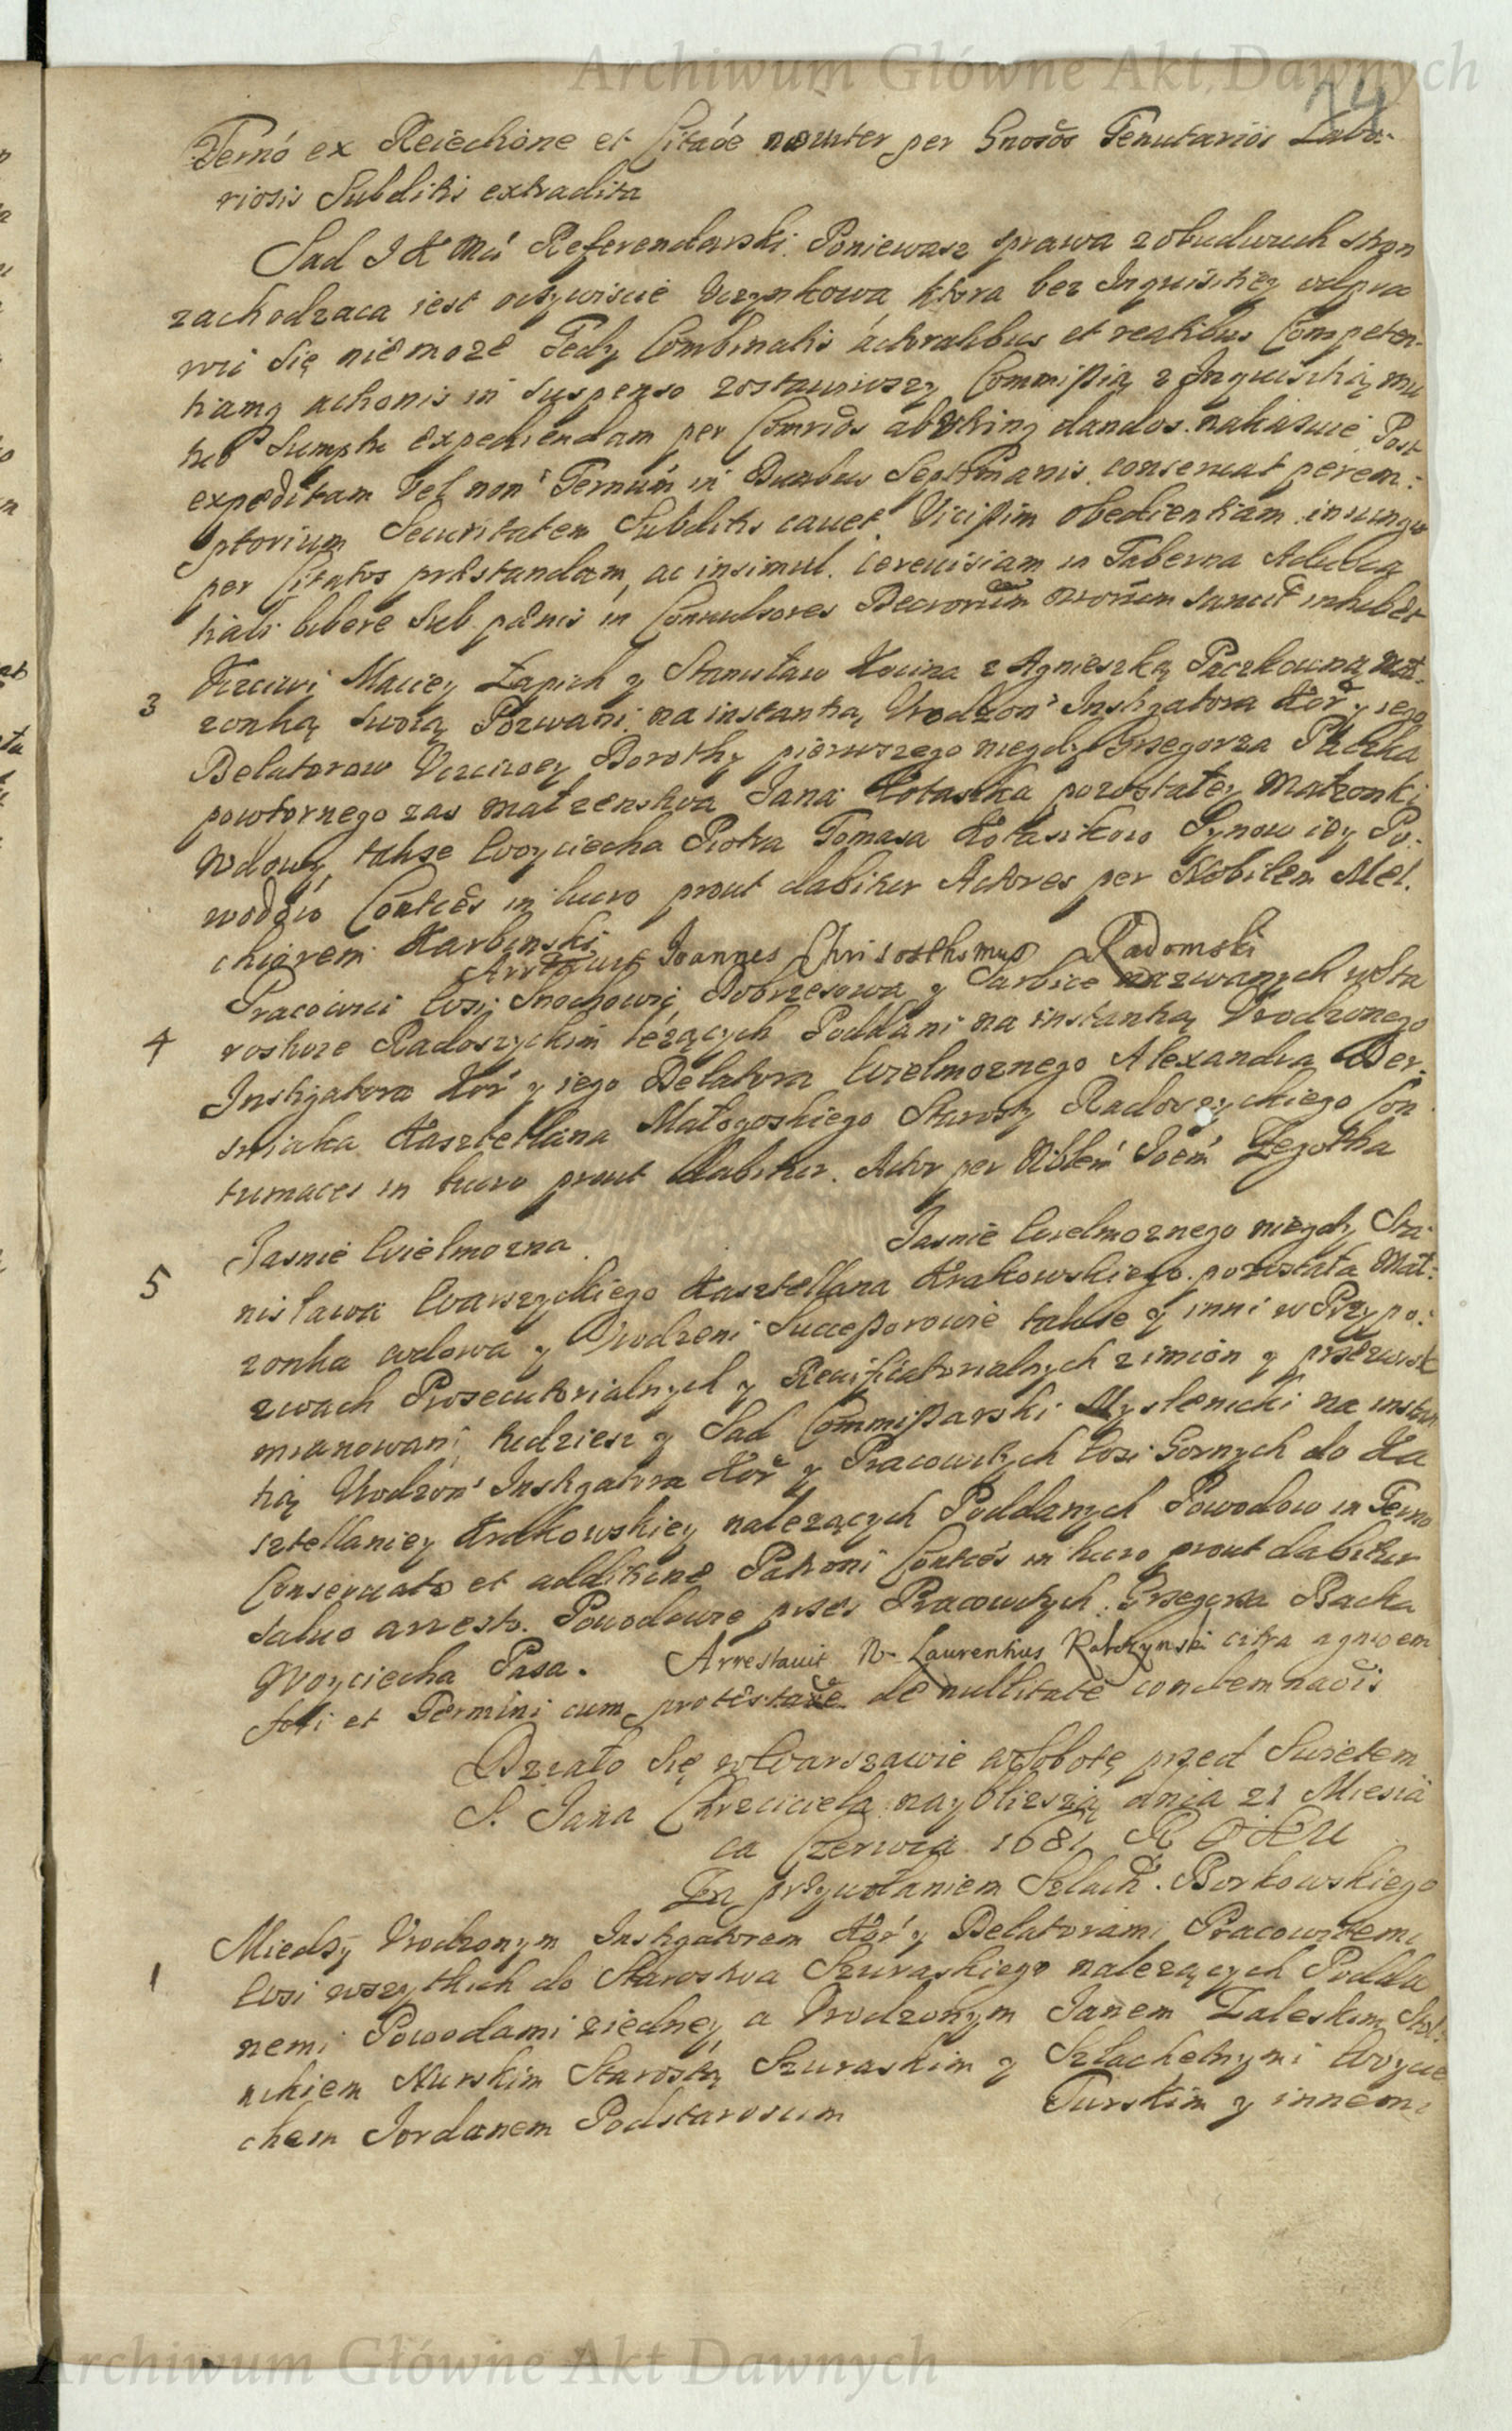 Archiwum Główne Akt Dawnych
74
Termo ex Reiectione et Citaoe noviter per Gnosos Tenutarios Labo-
riosis Subditis extradita
Sad J K Mci Referendarski. Poniewasz sprawa z obudwuch stron
zachodzaca iest oczywiscie Uczynkowa ktora bez Inquisitiey odpra
wić się nie moze Tedy Combinatis actoralibus et reatibus Competen-
tiamq actionis in suspenso zostawiwszy Commissią z Inquisitią mu
tuo Sumptu expediendam per Comrios ab utrinq dandos nakazuie Post
expeditam vel non Terminum in Duabus Septimanis conservat perem-
ptorium Securitatem Subditis cavet Vicissim obedientiam iniungit
per Citatos præstandam, ac insimul cerevisiam in Taberna Advoca
tiali bibere sub pænis in Convulsores Decretorum sancit inhibet
3 Uczciwi Maciey Łapich y Stanisław Kocina z Agnieszką Pączkowną Mał-
zonką swoią Pozwani na instantią Urodzon Instigatora Kor y iego
Delatorow Uczciwey Dorothy pierwszego niegdy Grzegorza Pączka
powtornego zas małzenstwa Jana Kotasika pozostałey Małzonki
Wdowy, takze Woyciecha Piotra Tomasa Kotasikow Synow iey Po-
wodow Contces in lucro prout dabitur Actores per Nobilem Mel-
chiorem Karbinski
Arrestavit Joannes Chrisosthomus Radomski
4 Pracowici Wsi Grochowie, Dobrzesowa y Sarbice nazwanych w Sta
rostwie Radoszyckim lezących Poddani na instantią Urodzonego
Instigatora Kor y iego Delatora Wielmoznego Alexandra Der-
sniaka Kasztellana Małogoskiego Starosty Radoszyckiego Con
tumaces in lucro prout dabitur. Actor per Nblem Joem Zegotka
5 Jasnie Wielmozna Jasnie Wielmoznego niegdy Sta-
nisława Warszyckiego Kasztellana Krakowskiego pozostała Mał-
zonka wdowa y Urodzeni Successorowie takze y inni w Przypo-
zwach Prosecutorialnych y Reificatorialnych z imion y przezwisk
mianowani tudziesz y Sad Commissarski Myslenicki na instan
tią Urodzon Instigatora Kor y Pracowitych Wsi Gornych do Ka
sztellaniey Krakowskiey nalezących Poddanych Powodow in Termo
Conservato et additione Patroni Contces in lucro prout dabitur
salvo arresto. Powodowie przes Pracowitych Grzegorza Bacha
Woyciecha Pasa. Arrestavit N. Laurentius Ratczynski citra agnoem
fori et Termini cum protestaoe de nullitate condemnaois
Działo się w Warszawie w Sobotę przed Swietem
S. Jana Chrzciciela nayblizszą dnia 21 Miesią
ca Czerwca 1681 ROKU
Za przywołaniem Szlach. Borkowskiego
1 Miedzy Urodzonym Instigatorem Kor y Delatorami Pracowitemi
Wsi wszytkich do Starostwa Szuraskiego nalezących Podda
nemi Powodami ziedney a Urodzonym Janem Zaleskim Stol-
nikiem Nurskim Starostą Szuraskim y Szlachetnymi Woycie
chem Jordanem Podstaroscim Turskim y innemi
Archiwum Główne Akt Dawnych